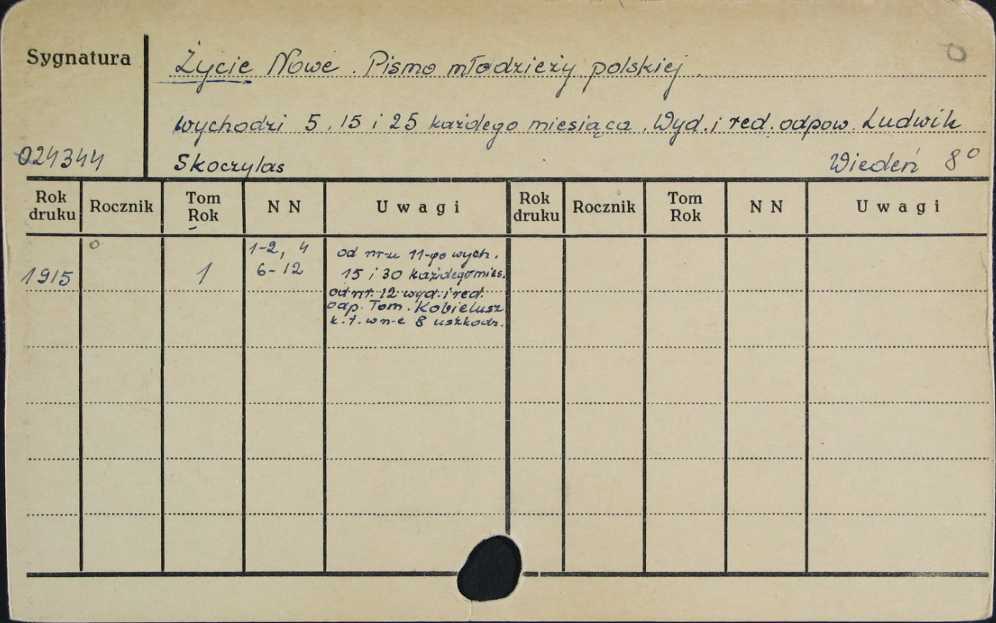 Sygnatura
Życie Nowe. Pismo młodzieży polskiej.
wychodzi 5, 15 i 25 każdego miesiąca. Wyd. i red. odpow. Ludwik
024344 Skoczylas Wiedeń 8°
Rok druku Rocznik Tom Rok NN Uwagi Rok druku Rocznik Tom Rok NN Uwagi
1915 1
1-2, 4
6-12
od nru 11-go wych.
15 i 30 każdego mies.
od nr. 12 wyd. i red.
odp. Tom. Kobielusz
k. t. w n-e 8 uszkodz.